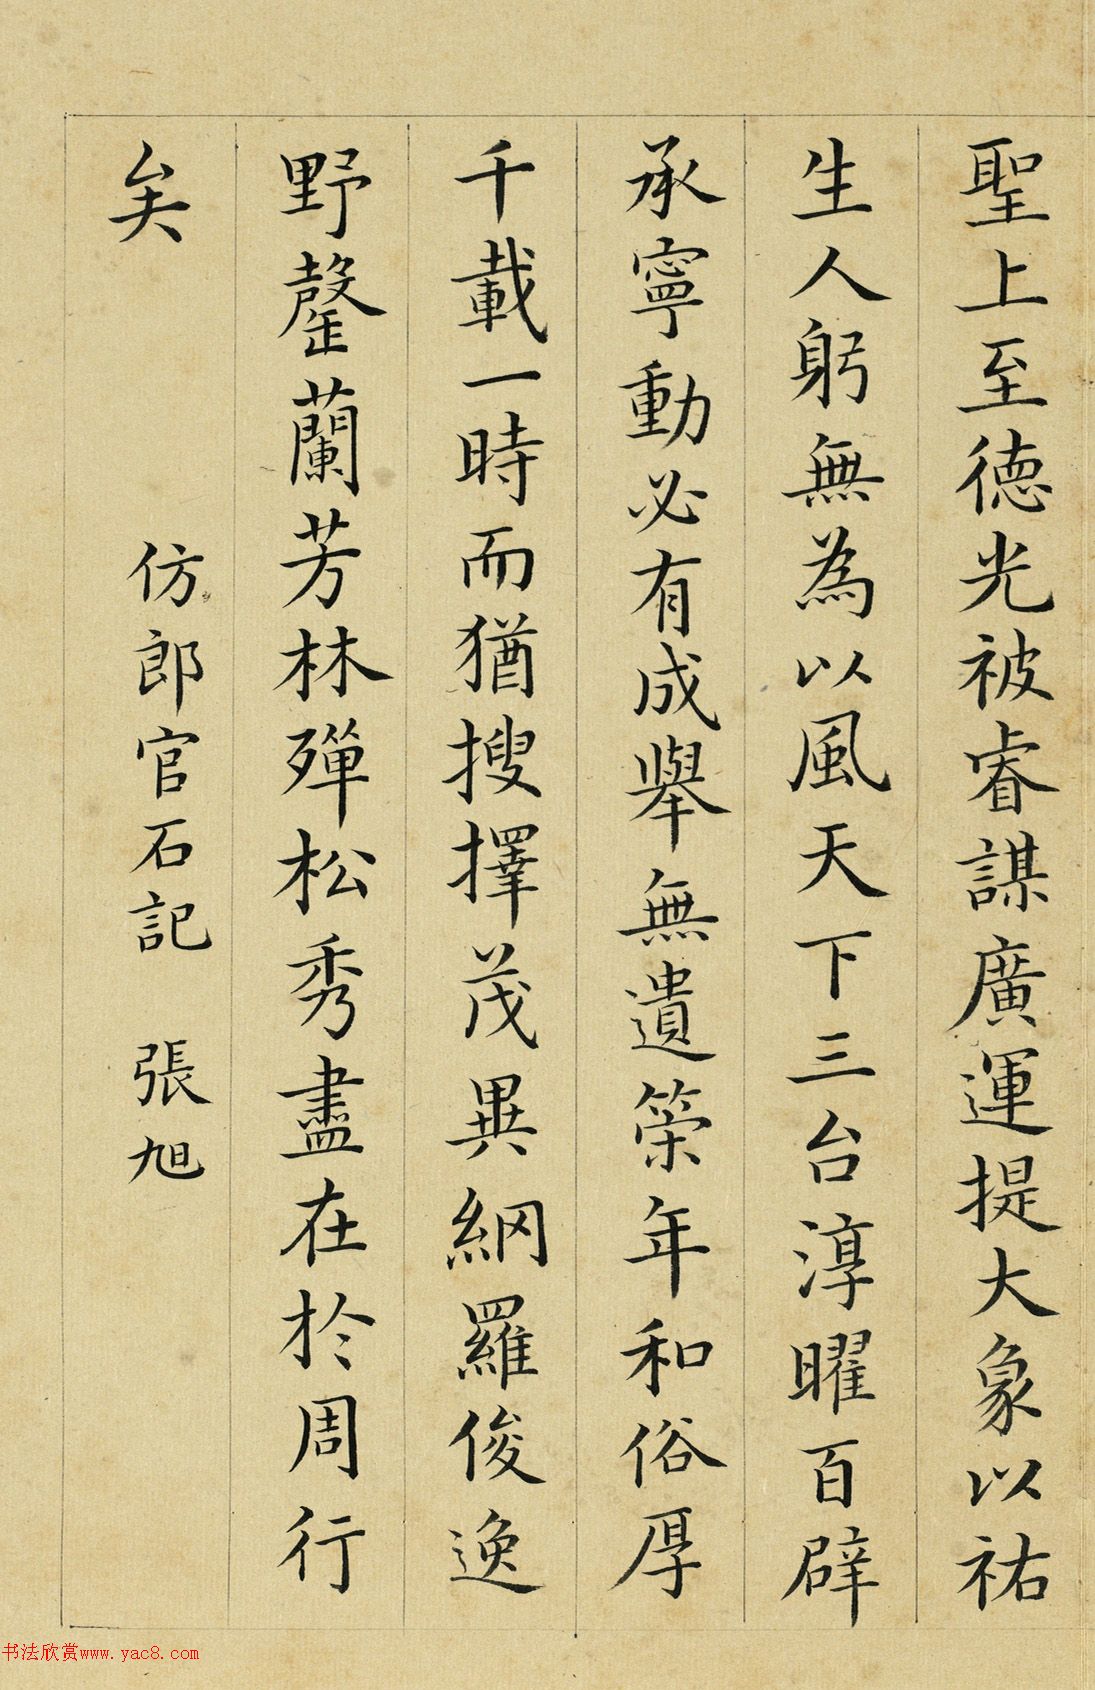 聖上至德光被睿謀廣運提大象以祐
生人躬無為以風天下三台淳曜百辟
承寧動必有成舉無遺策年和俗厚
千載一時而猶搜擇茂異網羅俊逸
野罄蘭芳林殫松秀盡在於周行
矣
仿郎官石記 張旭
书法欣赏www.yac8.com